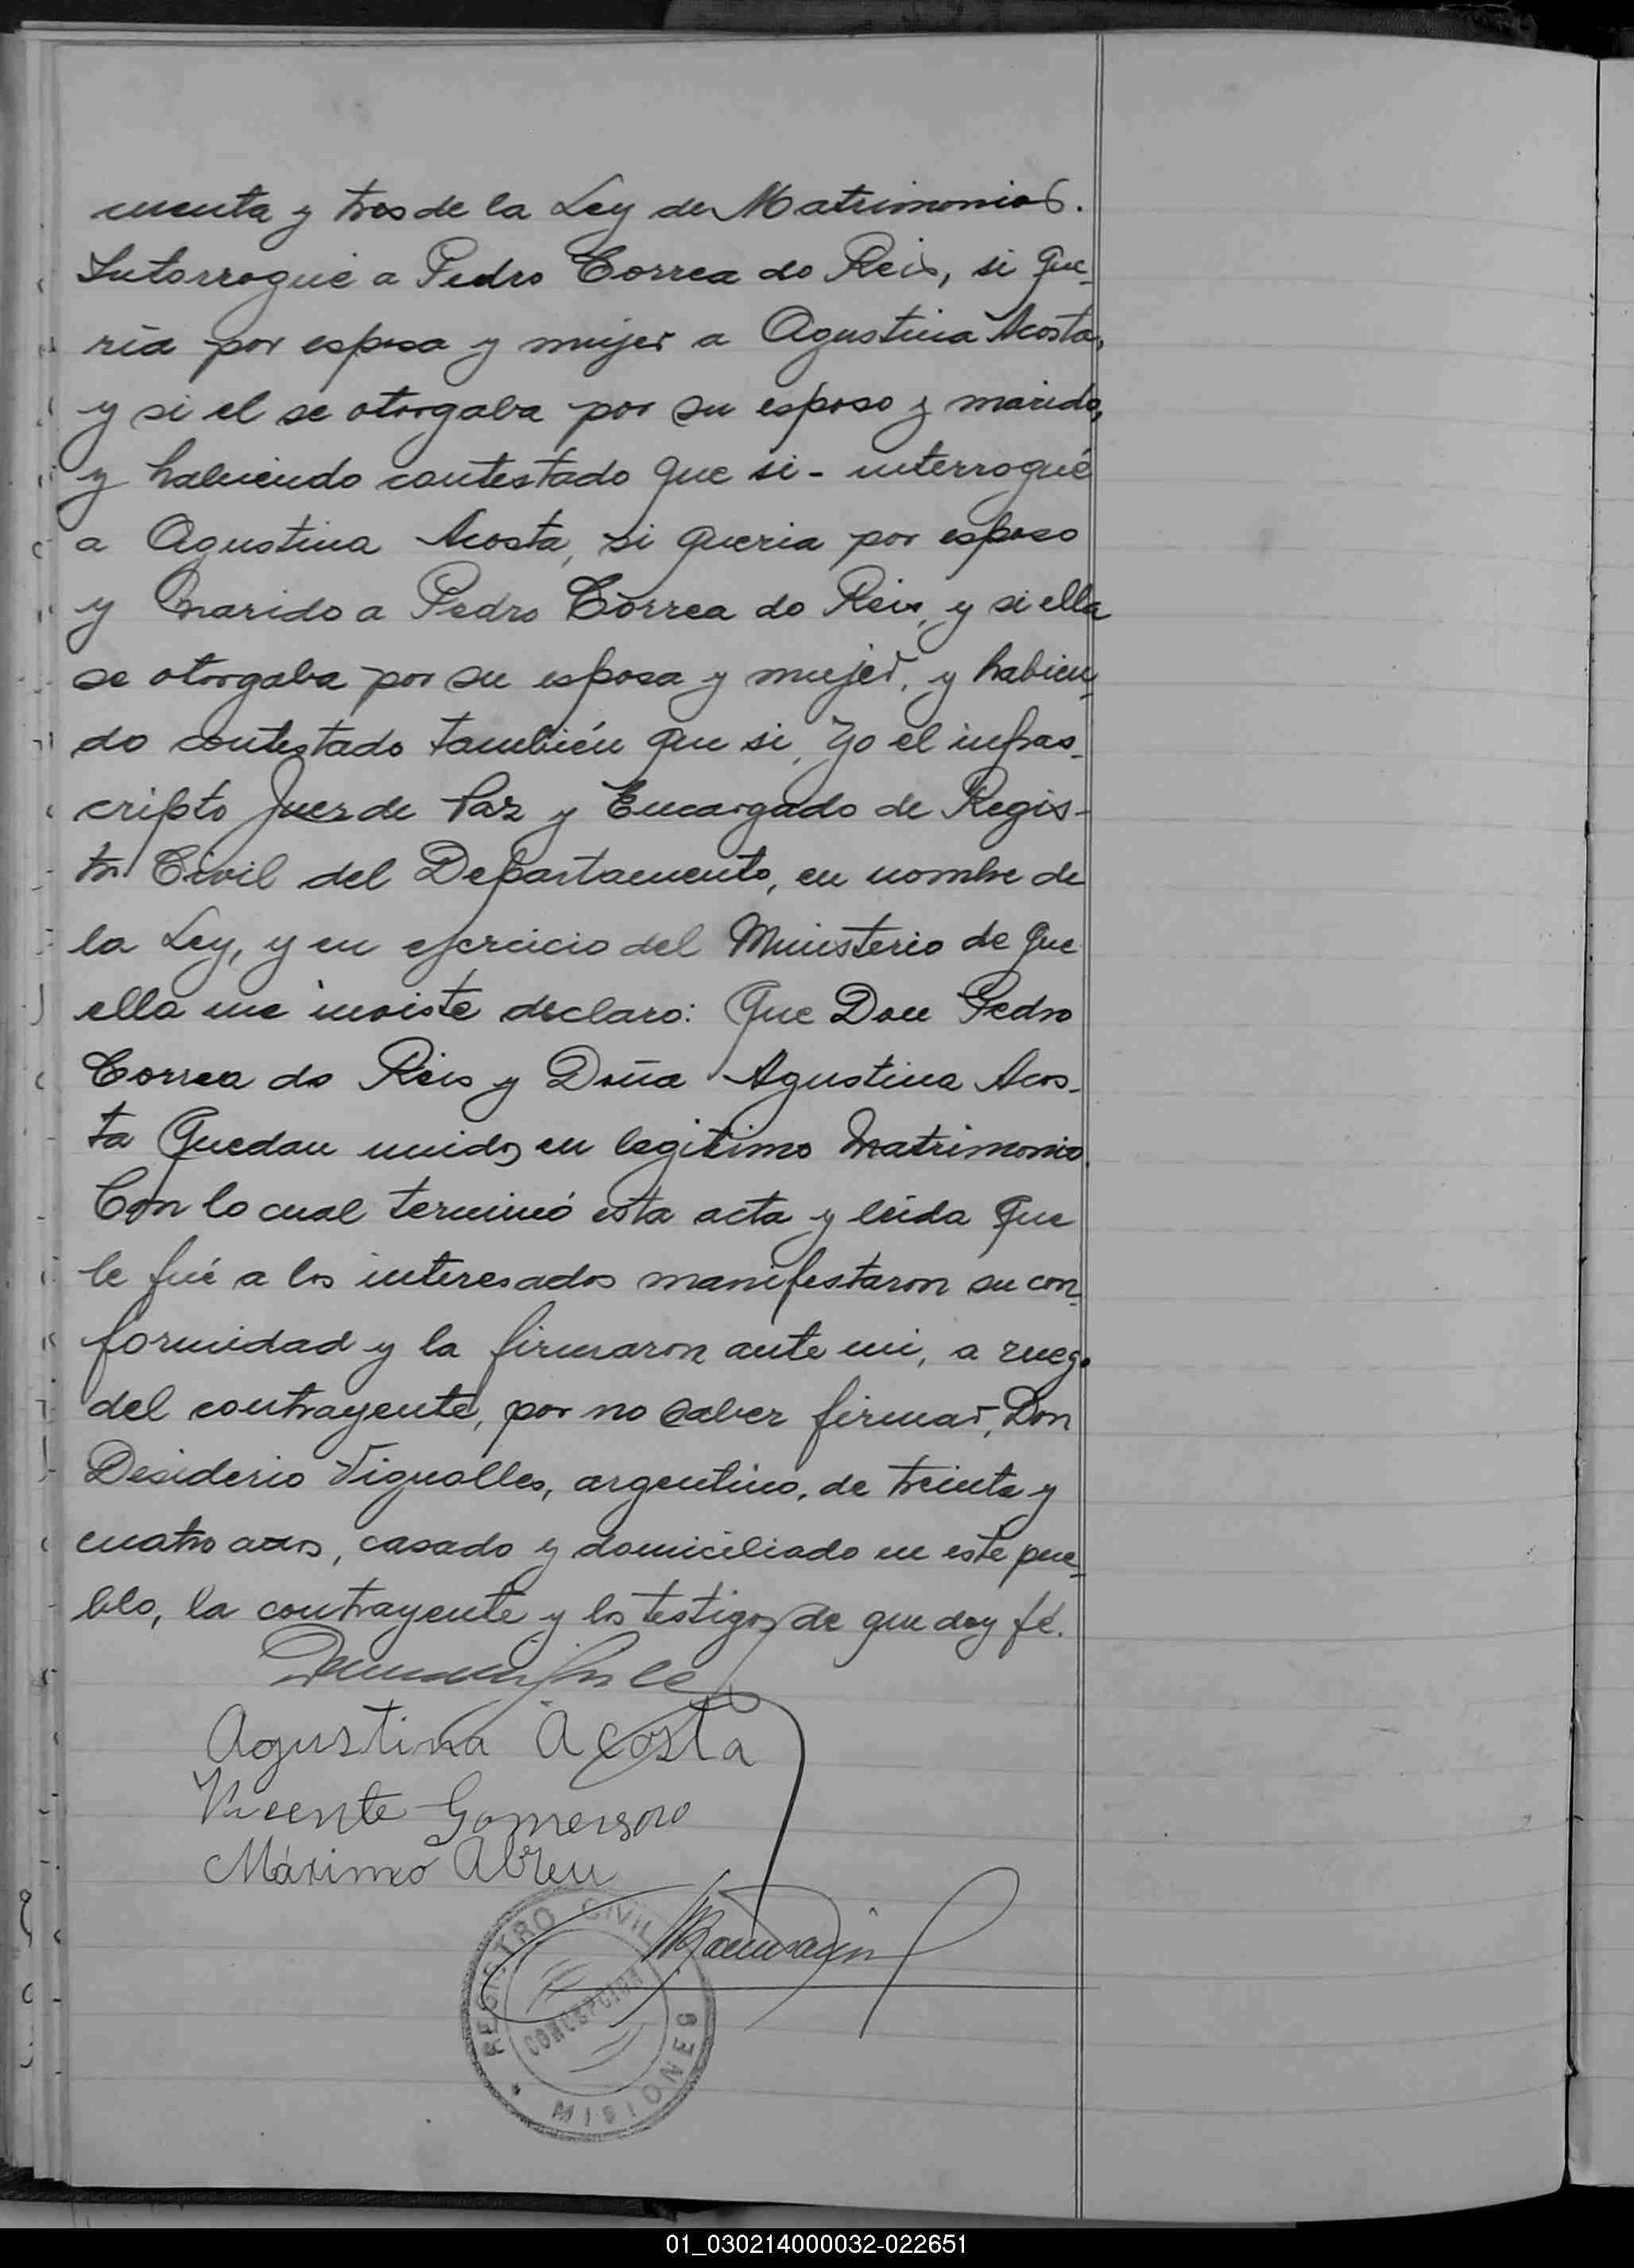 cuenta y tres de la Ley de Matrimonios.
Interrogué a Pedro Correa do Reis, si que-
ría por esposa y mujer a Agustina Acosta,
y si el se otorgaba por su esposo y marido,
y habiendo contestado que si - interrogué
a Agustina Acosta, si queria por esposo
y marido a Pedro Correa do Reis, y si ella
se otorgaba por su esposa y mujer, y habien-
do contestado también que si, Yo el infras-
cripto Juez de Paz y Encargado de Regis-
tro Civil del Departamento, en nombre de
la Ley, y en ejercicio del Ministerio de que
ella me inviste declaro: Que Don Pedro
Correa do Reis y Doña Agustina Acos-
ta Quedan unidos en legitimo Matrimonio.
Con lo cual terminó esta acta y leida que
le fué a los interesados manifestaron su con-
formidad y la firmaron ante mi, a ruego
del contrayente, por no saber firmar, Don
Desiderio Vignolles, argentino, de treinta y
cuatro años, casado y domiciliado en este pue-
blo, la contrayente y los testigos de que doy fé.
Agustina Acosta
Vicente Gomensoro
Máximo Abreu
REGISTRO CIVIL
CONCEPCION
MISIONES
01_030214000032-022651